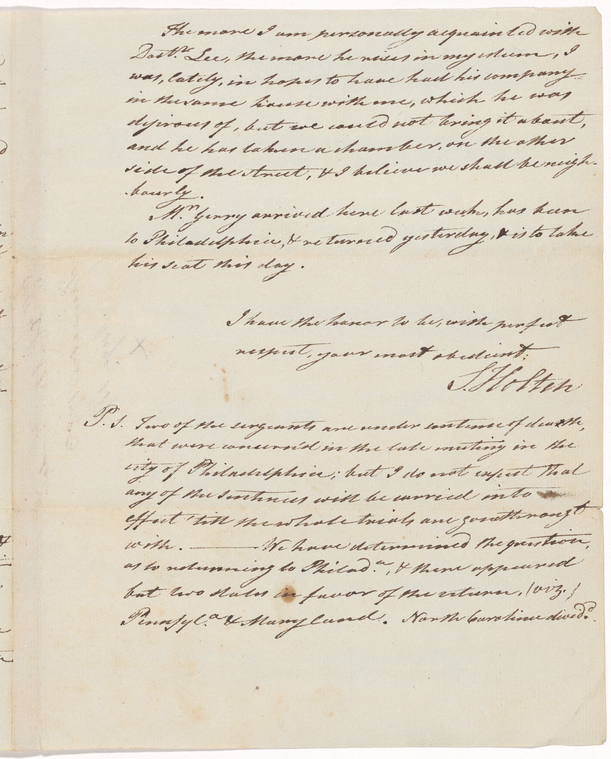 The more I am personally acquainted with
Doctr. Lee, the more he rises in my esteem, I
was, lately, in hopes to have had his company
in the same house with me, which he was
disirous of, but we could not bring it about,
and he has taken a chamber, on the other
side of the street, & I believe we shall be neigh-
bourly.
Mr. Gerry arrived here last week, has been
to Philadelphia, & returned yesterday, & is to take
his seat this day.
I have the honor to be, with perfect
respect, your most obedient.
S. Holten
P. S. Two of the sergeants are under sentence of death,
that were concern'd in the late mutiny in the
city of Philadelphia; but I do not expect that
any of the sentences will be carried into
effect 'till the whole trials are gone through
with. — We have determined the question,
as to returning to Philada., & there appeared
but two states in favor of the return, (viz.)
Pennsyla. & Maryland. North Caroline divid'd.